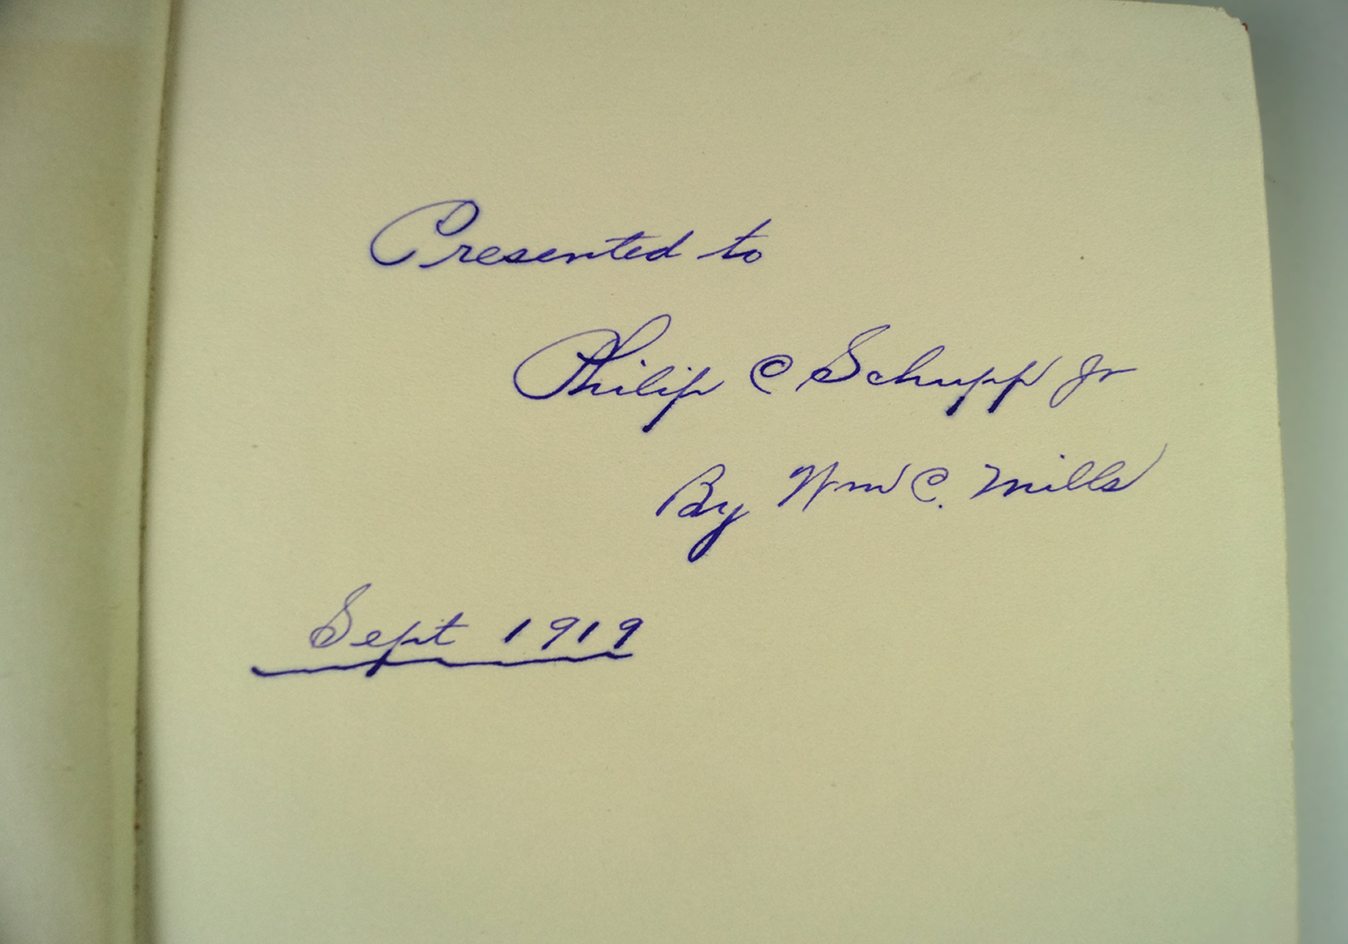 Presented to
Philip C Schupp Jr
By Wm C. Mills
Sept 1919